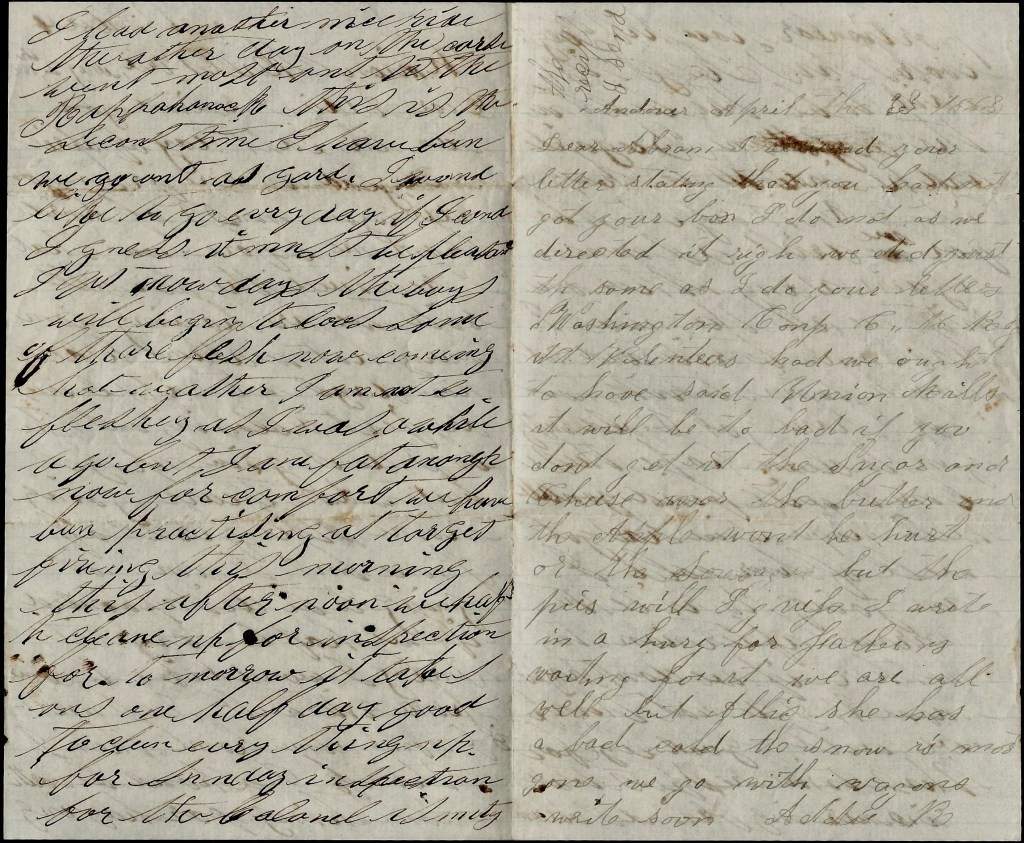 I had another nice ride
the other day on the cards
went most out to the
Rappahanock this is the
secon time I have bun
we go out as gard. I wood
like to go evry day if I coud
I guess it must be pleasant
nowdays the boys
will begin to loos some
of thare flesh now coming
hot weather I am not so
fleshey as I was a while
a go but I am fat anough
now for comfort we have
bun practising at target
firing this morning
this after noon we haft
to cleane up for inspection
for to morrow it takes
ous one half day good
to clean evry thing up
for Sunday inspection
for the Colonel is mity
Andover April the 1863
Dear Abram I received your
letter stating that you had nt
got your box I do not as we
directed it righ we did just
the same as I do your letters
Washington Comp C. Reg
Vt Volunteers had we ought
to have said Union Mills
it will be to bad if you
dont get it the Sugar and
Cheese and the butter and
the Apple wont be hurt
or the but the
pies will I guess I write
in a hury for Father is
waiting for it we are all
well but Allie she has
a bad cold the snow is most
gone we go with wagons
write soon Addie R